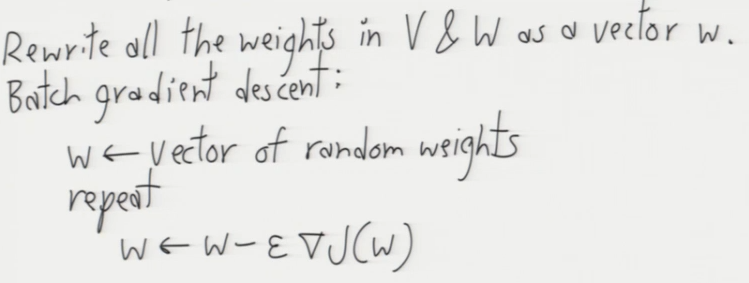 Rewrite all the weights in V & W as a vector w.
Batch gradient descent:
w ← vector of random weights
repeat
w ← w – ε ∇J(w)